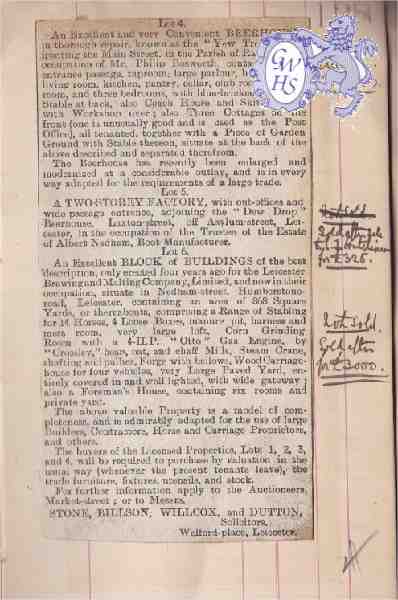 Lot 4.
An Excellent and very Convenient BEERHOUSE
in thorough repair, known as the "Yew Tree
fronting the Main Street, in the Parish of
occupation of Mr. Philip Bosworth,
entrance passage, taproom, large parlour,
living room, kitchen, pantry, cellar, club room
room, and three bedrooms, with
Stable at back, also Coach House and
with Workshop over; also Three Cottages
front (one is unusually good and is used as the Post
Office), all tenanted, together with a Piece of Garden
Ground with Stable thereon, situate at the back of the
above described and separated therefrom.
The Beerhouse has recently been enlarged and
modernised at a considerable outlay, and is in every
way adapted for the requirements of a large trade.
Lot 5.
A TWO-STOREY FACTORY, with out-offices and
wide passage entrance, adjoining the "Dew Drop"
Beerhouse, Laxton-street, off Asylum-street, Lei-
cester, in the occupation of the Trustee of the Estate
of Albert Nedham, Boot Manufacturer.
Lot 6.
An Excellent BLOCK of BUILDINGS of the best
description, only erected four years ago for the Leicester
Brewing and Malting Company, Limited, and now in their
occupation, situate in Nedham-street, Humberstone-
road, Leicester, containing an area of 868 Square
Yards, or thereabouts, comprising a Range of Stabling
for 14 Horses, 4 Loose Boxes, manure pit, harness and
mess room, very large loft, Corn Grinding
Room with a 4-H.P. "Otto" Gas Engine, by
"Crossley," bean, oat, and chaff Mills, Steam Crane,
shafting and pulleys, Forge with bellows, Wood Carriage-
house for four vehicles, very Large Paved Yard, en-
tirely covered in and well lighted, with wide gateway;
also a Foreman's House, containing six rooms and
private yard.
The above valuable Property is a model of com-
pleteness, and is admirably adapted for the use of large
Builders, Contractors, Horse and Carriage Proprietors,
and others.
The buyers of the Licensed Properties, Lots 1, 2, 3,
and 4, will be required to purchase by valuation in the
usual way (whenever the present tenants leave), the
trade furniture, fixtures, utensils, and stock.
For further information apply to the Auctioneers,
Market-street; or to Messrs.
STONE, BILLSON, WILLCOX, and DUTTON,
Solicitors,
Welford-place, Leicester.
G W
H S
for £325.
Not Sold.
Sold after
for £3000.